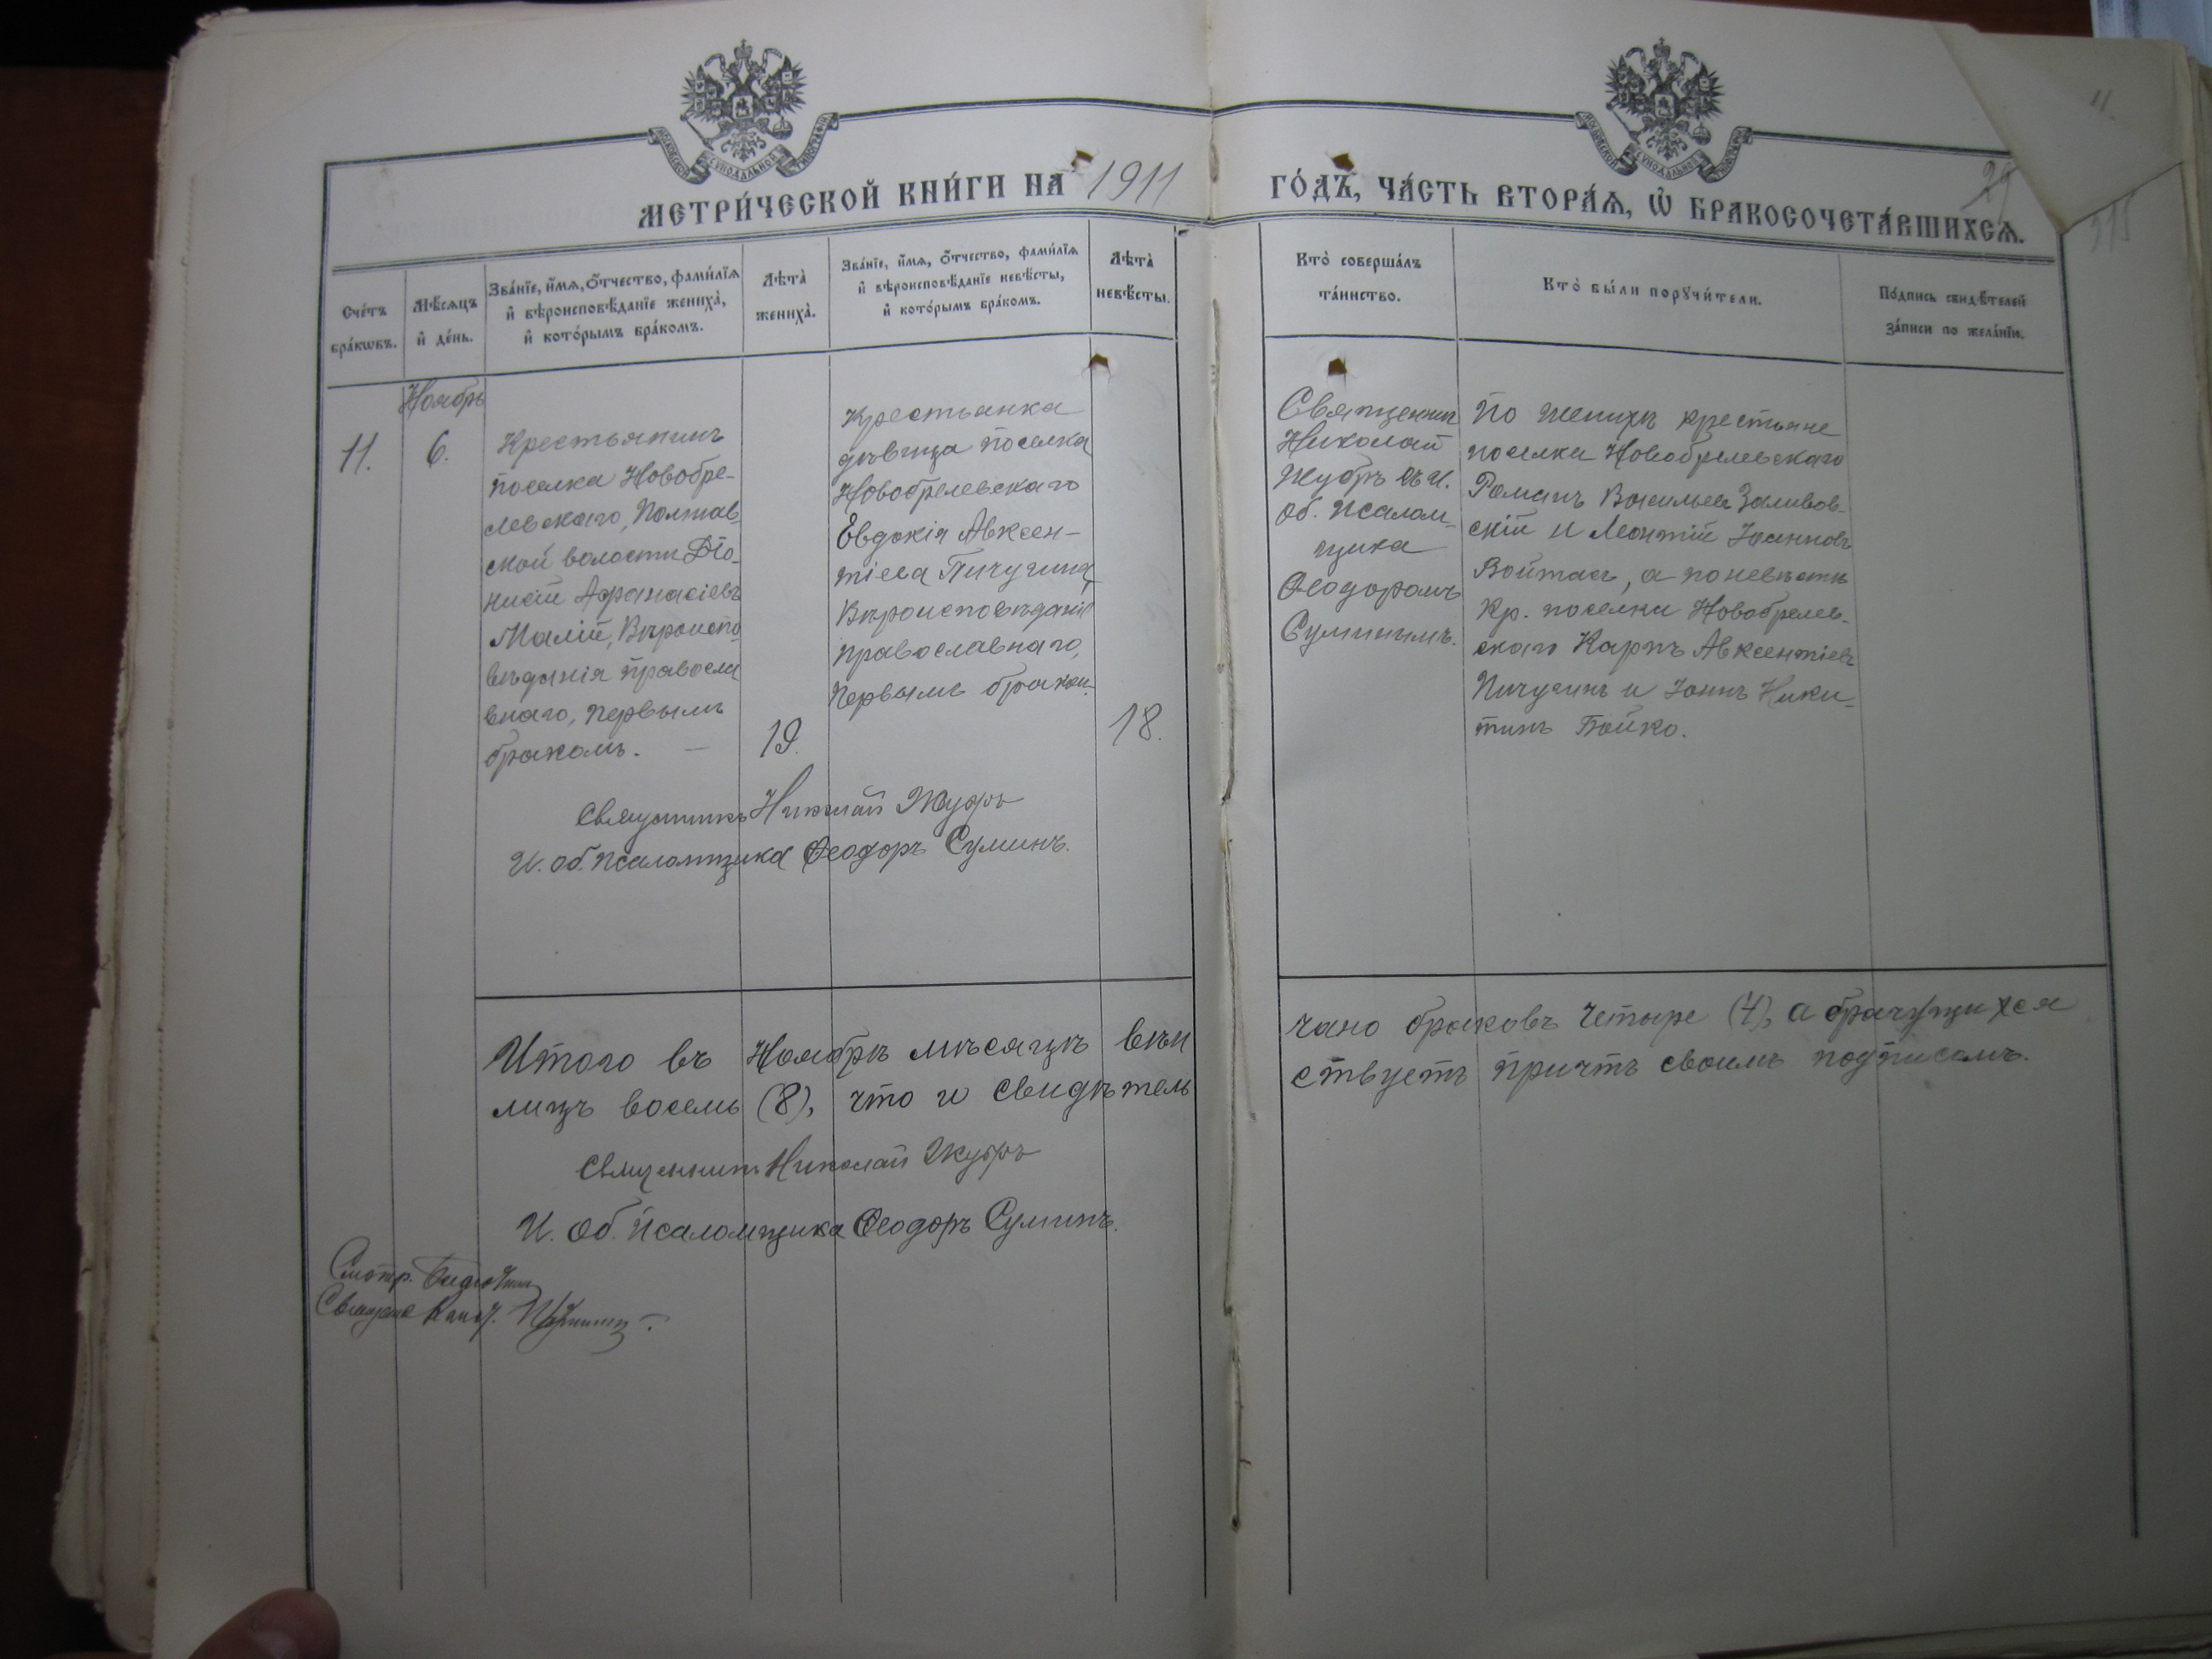 МОСКОВСКОЙ СУНОДАЛЬНОЙ ТИПОГРАФІИ
МОСКОВСКОЙ СУНОДАЛЬНОЙ ТИПОГРАФІИ
11
29
МЕТРИ́ЧЕСКОЙ КНИ́ГИ НА 1911
ГО́ДЪ, ЧА́СТЬ ВТОРА́Ѧ, Ѡ҆ БРАКОСОЧЕТА́ВШИХСѦ.
Сче́тъ
бра́кѡвъ.
Мѣ́сѧцъ
и҆ де́нь.
Зва́нїе, и҆́мѧ, ѻ҆́тчество, фами́лїѧ
и҆ вѣроисповѣ́данїе жениха̀,
и҆ кото́рымъ бра́комъ.
Лѣта̀
жениха̀.
Зва́нїе, и҆́мѧ, ѻ҆́тчество, фами́лїѧ
и҆ вѣроисповѣ́данїе невѣ́сты,
и҆ кото́рымъ бра́комъ.
Лѣта̀
невѣ́сты.
Кто̀ соверша́лъ
та́инство.
Кто̀ бы́ли порꙋчи́тели.
По́дпись свидѣ́телей
за́писи по жела́нїю.
Ноябрь
11.
6.
Крестьянинъ
поселка Новобре-
левскаго, Полтав-
ской волости Діо-
нисій Афанасіевъ
Малій, Вѣроиспо-
вѣданія правосла
внаго, первымъ
бракомъ. —
19.
Крестьянка
дѣвица поселка
Новобрелевскаго
Евдокія Авксен-
тіева Пичугина,
Вѣроисповѣданія
православнаго,
первымъ бракомъ.
18.
Священникъ
Николай
Жубръ съ И.
об. псалом-
щика
Ѳеодоромъ
Суминымъ.
По женихѣ крестьяне
поселка Новобрелевскаго
Романъ Васильевъ Заливов-
скій и Леонтій Іоанновъ
Войтасъ, а по невѣстѣ
Кр. поселка Новобрелев-
скаго Карпъ Авксентіевъ
Пичугинъ и Іоаннъ Ники-
тинъ Бойко.
Священникъ Николай Жубръ
И. об. псаломщика Ѳеодоръ Суминъ.
Итого въ Ноябрѣ мѣсяцѣ вѣн
чано браковъ четыре (4), а брачущихся
лицъ восемь (8), что и свидѣтель
ствуетъ причтъ своимъ подписомъ.
Священникъ Николай Жубръ
И. об. псаломщика Ѳеодоръ Суминъ.
Смотр.